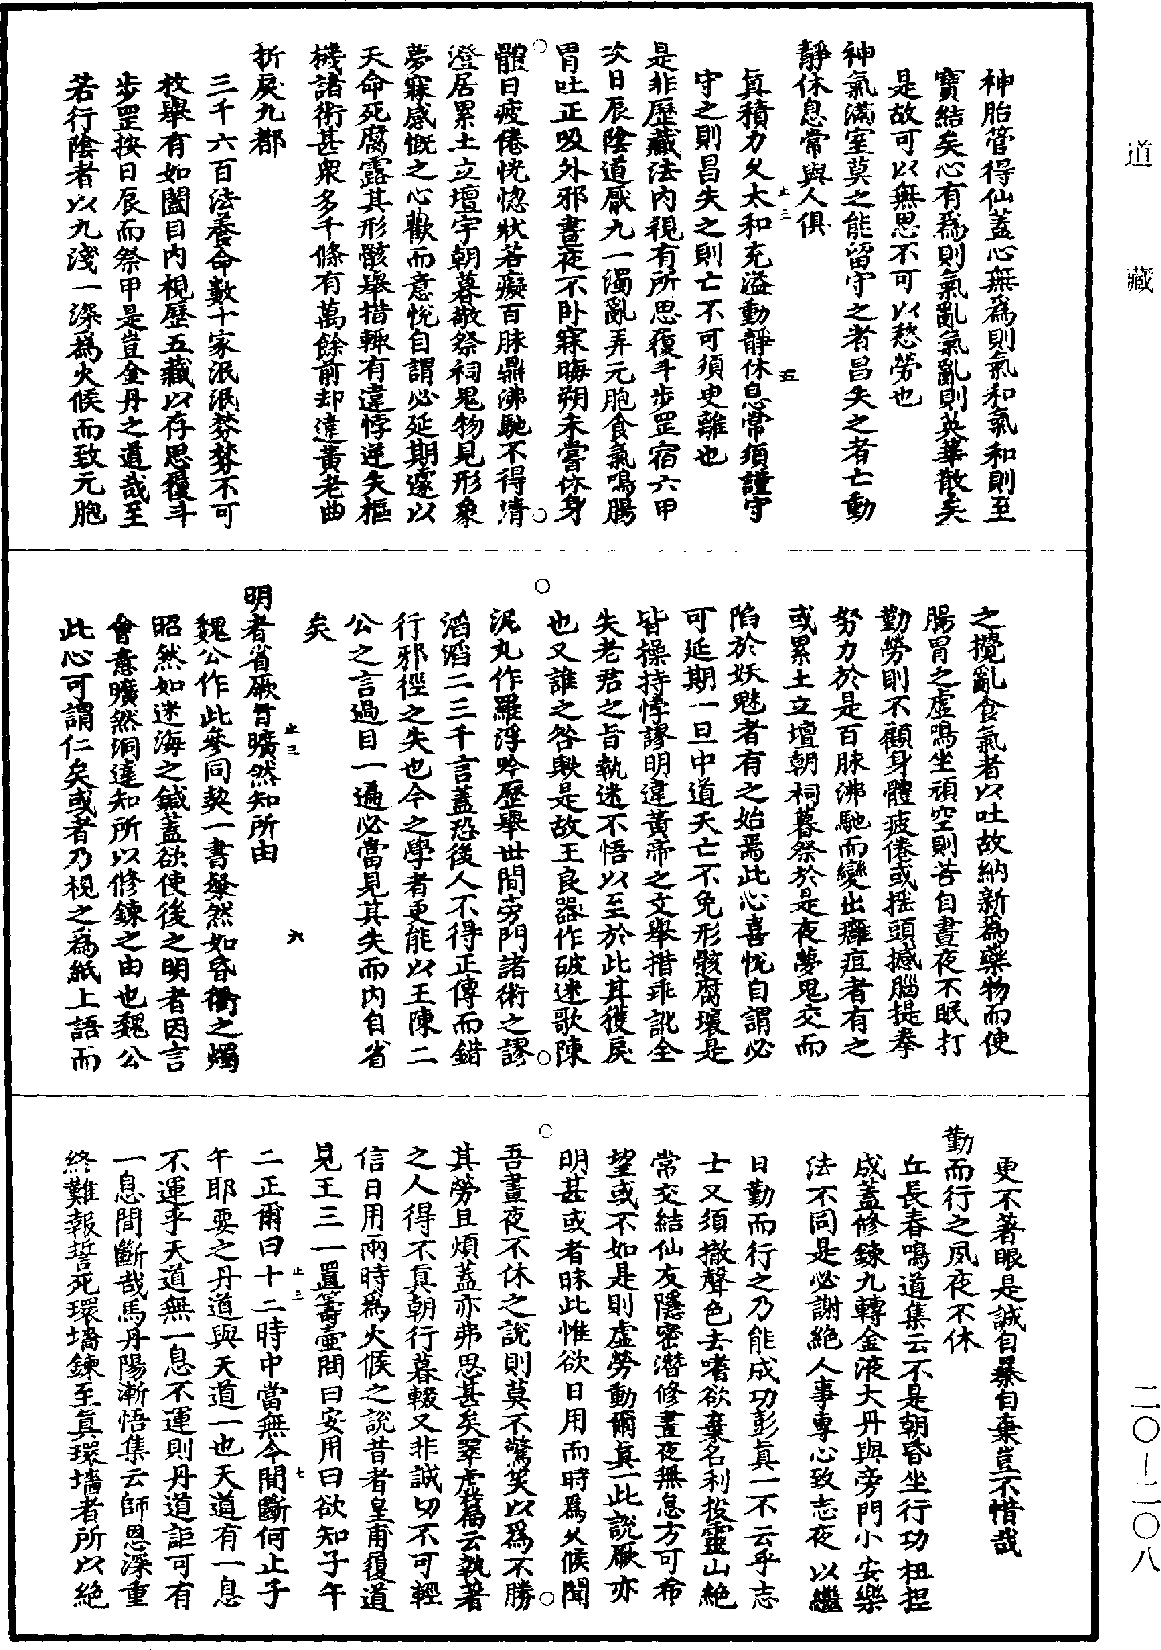 神胎管得仙蓋心無爲則氣和氣和則至
寶結矣心有爲則氣亂氣亂則英華散矣
是故可以無思不可以愁勞也
神氣滿室莫之能留守之者昌失之者亡動
靜休息常與人俱
眞積力久太和充溢動靜休息常須謹守
守之則昌失之則亡不可須臾離也
是非歷藏法内視有所思履斗步罡宿六甲
次日辰陰道厭九一濁亂弄元胞食氣鳴腸
胃吐正吸外邪晝夜不卧寐晦朔未嘗休身
體日疲倦恍惚狀若癡百脉鼎沸馳不得清
澄居累土立壇宇朝暮敬祭祠鬼物見形象
夢寐感慨之心歡而意悅自謂必延期遽以
天命死腐露其形骸舉措輒有違悖逆失樞
機諸術甚衆多千條有萬餘前却違黃老曲
折戾九都
三千六百法養命數十家泯泯棼棼不可
枚舉有如闔目内視歷五藏以存思履斗
步罡按日辰而祭甲是豈金丹之道哉至
若行陰者以九淺一深爲火候而致元胞
之攪亂食氣者以吐故納新爲藥物而使
腸胃之虛鳴坐頑空則苦自晝夜不眠打
勤勞則不顧身體疲倦或摇頭撼腦提拳
努力於是百脉沸馳而變出癰疽者有之
或累土立壇朝祠暮祭於是夜夢鬼交而
陷於妖魅者有之始焉此心喜悅自謂必
可延期一旦中道夭亡不免形骸腐壞是
皆操持悖謬明違黃帝之文舉措乖訛全
失老君之旨執迷不悟以至於此其獲戾
也又誰之咎歟是故王良器作破迷歌陳
泥丸作羅浮吟歷舉世間旁門諸術之謬
滔滔二三千言蓋恐後人不得正傳而錯
行邪徑之失也今之學者更能以王陳二
公之言過目一遍必當見其失而内自省
矣
明者省厥旨曠然知所由
魏公作此參同契一書粲然如昏衢之燭
昭然如迷海之鍼蓋欲使後之明者因言
會意曠然洞達知所以修鍊之由也魏公
此心可謂仁矣或者乃視之爲紙上語而
更不著眼是誠自暴自棄豈不惜哉
勤而行之夙夜不休
丘長春鳴道集云不是朝昏坐行功扭捏
成蓋修鍊九轉金液大丹與旁門小安樂
法不同是必謝絕人事專心致志夜以繼
日勤而行之乃能成功彭眞一不云乎志
士又須撤聲色去嗜欲棄名利投靈山絕
常交結仙友隱密潛修晝夜無怠方可希
望或不如是則虛勞動爾眞一此說厥亦
明甚或者昧此惟欲日用而時爲火候聞
吾晝夜不休之說則莫不驚笑以爲不勝
其勞且煩蓋亦弗思甚矣翠虛篇云執著
之人得不眞朝行暮輟又非誠切不可輕
信日用兩時爲火候之說昔者皇甫履道
見王三一置籌壷問曰安用曰欲知子午
二正爾曰十二時中當無令間斷何止子
午耶要之丹道與天道一也天道有一息
不運乎天道無一息不運則丹道詎可有
一息間斷哉馬丹陽漸悟集云師恩深重
終難報誓死環墻鍊至眞環墻者所以絕
道藏
二〇-二〇八
止三
五
止三
六
止三
七